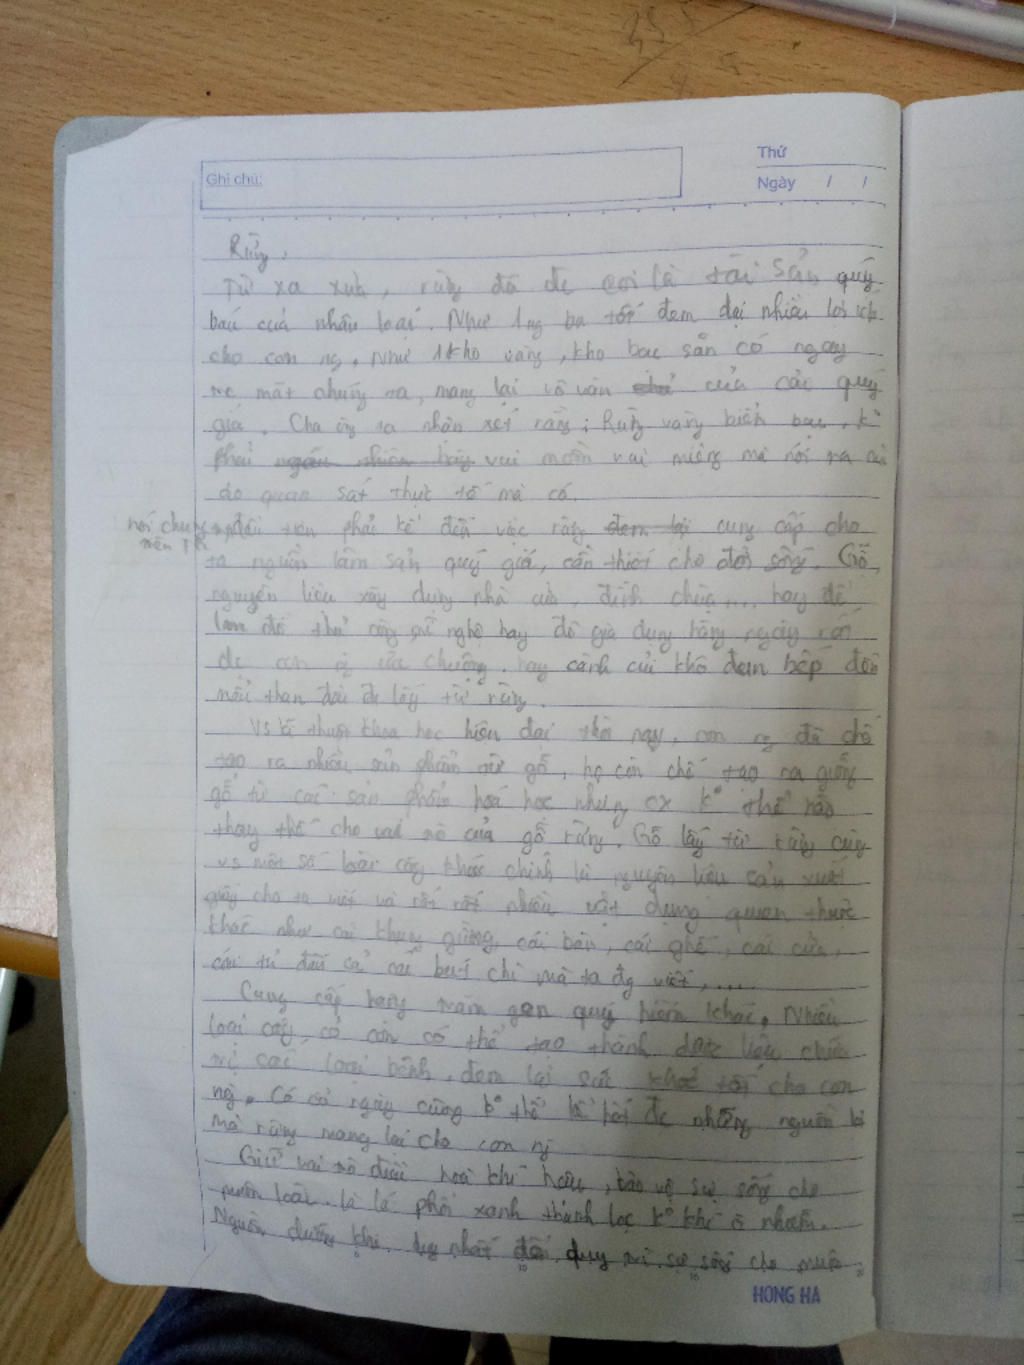 Thứ
Ghi chú:
Ngày / /
Rừng,
Từ xa xưa, rừng đã đc coi là tài sản quý
báu của nhân loại. Như 1 ng bạn tốt đem lại nhiều lợi ích
cho con ng. Như 1 kho vàng, kho bạc sẵn có ngay
trc mắt chúng ta, mang lại vô vàn của cải quý
giá. Cha ông ta nhận xét rằng: Rừng vàng biển bạc, k°
phải vui mồm vui miệng mà nói ra mà
do quan sát thực tế mà có.
nói chung
nên
đầu tiên phải kể đến việc rừng cung cấp cho
ta nguồn lâm sản quý giá, cần thiết cho đời sống. Gỗ,
nguyên liệu xây dựng nhà cửa, đình chùa,... hay để
làm đồ thủ công mĩ nghệ hay đồ gia dụng hằng ngày rất
đc con ng ưa chuộng. hay cành củi khô đem bếp đến
mẩu than đều đc lấy từ rừng.
Vs kĩ thuật khoa học hiện đại thời nay, con ng đã chế
tạo ra nhiều sản phẩm từ gỗ, họ còn chế tạo ra giống
gỗ từ các sản phẩm hoá học nhưng cx k° thể nào
thay thế cho vai trò của gỗ rừng. Gỗ lấy từ rừng cùng
vs một số loài cây khác chính là nguyên liệu sản xuất
giấy cho ta viết và rất rất nhiều vật dụng quen thuộc
khác như cái khung giường, cái bàn, cái ghế, cái cửa,
cái tủ đến cả cái bút chì mà ta đg viết,.....
Cung cấp hàng trăm gen quý hiếm khác. Nhiều
loại cây, cỏ còn có thể tạo thành dược liệu chữa
trị các loại bệnh, đem lại sức khoẻ tốt cho con
ng. Có cả ngày cũng k° thể kể hết đc những nguồn lợi
mà rừng mang lại cho con ng
Giữ vai trò điều hoà khí hậu, bảo vệ sự sống cho
muôn loài. là lá phổi xanh thanh lọc k° khí ô nhiễm.
Nguồn dưỡng khí duy nhất để duy trì sự sống cho muôn
HONG HA